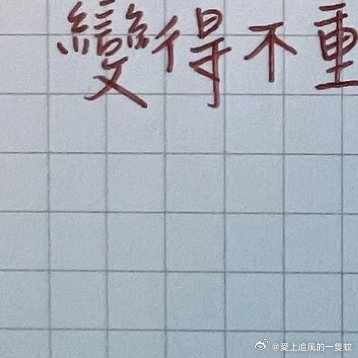 變得不重
@愛上追風的一隻蚊